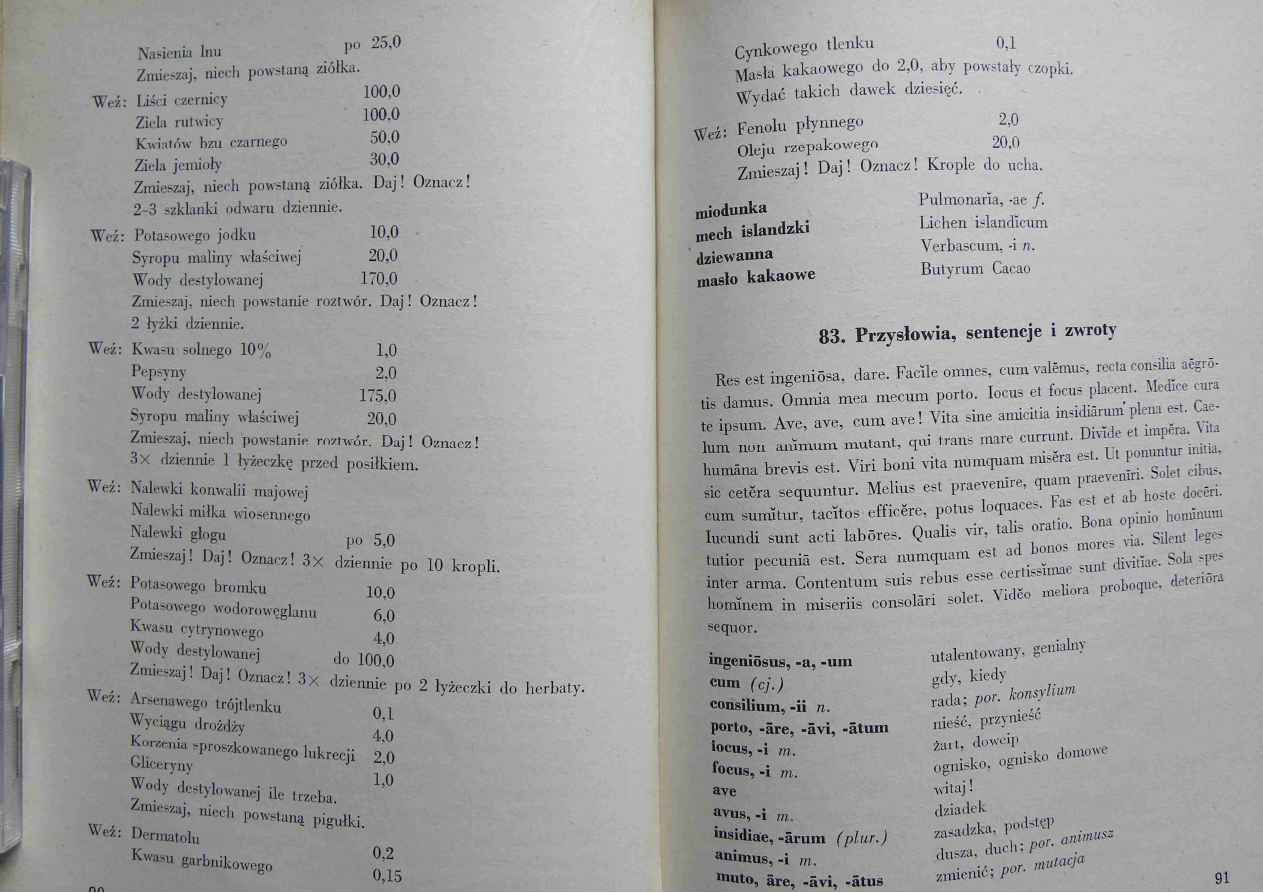 Nasienia lnu po 25,0
Zmieszaj, niech powstaną ziółka.
Weź: Liści czernicy 100,0
Ziela rutwicy 100,0
Kwiatów bzu czarnego 50,0
Ziela jemioły 30,0
Zmieszaj, niech powstaną ziółka. Daj! Oznacz!
2–3 szklanki odwaru dziennie.
Weź: Potasowego jodku 10,0
Syropu maliny właściwej 20,0
Wody destylowanej 170,0
Zmieszaj, niech powstanie roztwór. Daj! Oznacz!
2 łyżki dziennie.
Weź: Kwasu solnego 10% 1,0
Pepsyny 2,0
Wody destylowanej 175,0
Syropu maliny właściwej 20,0
Zmieszaj, niech powstanie roztwór. Daj! Oznacz!
3× dziennie 1 łyżeczkę przed posiłkiem.
Weź: Nalewki konwalii majowej
Nalewki miłka wiosennego
Nalewki głogu po 5,0
Zmieszaj! Daj! Oznacz! 3× dziennie po 10 kropli.
Weź: Potasowego bromku 10,0
Potasowego wodorowęglanu 6,0
Kwasu cytrynowego 4,0
Wody destylowanej do 100,0
Zmieszaj! Daj! Oznacz! 3× dziennie po 2 łyżeczki do herbaty.
Weź: Arsenawego trójtlenku 0,1
Wyciągu drożdży 4,0
Korzenia sproszkowanego lukrecji 2,0
Gliceryny 1,0
Wody destylowanej ile trzeba.
Zmieszaj, niech powstaną pigułki.
Weź: Dermatolu 0,2
Kwasu garbnikowego 0,15
Cynkowego tlenku 0,1
Masła kakaowego do 2,0, aby powstały czopki.
Wydać takich dawek dziesięć.
Weź: Fenolu płynnego 2,0
Oleju rzepakowego 20,0
Zmieszaj! Daj! Oznacz! Krople do ucha.
miodunka Pulmonarĭa, -ae f.
mech islandzki Lichen islandĭcum
dziewanna Verbascum, -i n.
masło kakaowe Butyrum Cacao
83. Przysłowia, sentencje i zwroty
Res est ingeniōsa, dare. Facĭle omnes, cum valēmus, recta consilia aēgrō-
tis damus. Omnia mea mecum porto. Iocus et focus placent. Medĭce cura
te ipsum. Ave, ave, cum ave! Vita sine amicitia insidiārum plena est. Cae-
lum non anĭmum mutant, qui trans mare currunt. Divĭde et impĕra. Vita
humāna brevis est. Viri boni vita numquam misĕra est. Ut ponuntur initia,
sic cetĕra sequuntur. Melius est praevenīre, quam praevenīri. Solet cibus,
cum sumĭtur, tacĭtos efficĕre, potus loquaces. Fas est et ab hoste docēri.
Iucundi sunt acti labōres. Qualis vir, talis oratio. Bona opinio homĭnum
tutior pecuniā est. Sera numquam est ad bonos mores via. Silent leges
inter arma. Contentum suis rebus esse certissĭmae sunt divitĭae. Sola spes
homĭnem in miseriis consolāri solet. Vidĕo meliora proboque, deteriōra
sequor.
ingeniōsus, -a, -um utalentowany, genialny
cum (cj.) gdy, kiedy
consilium, -ii n. rada; por. konsylium
porto, -āre, -āvi, -ātum nieść, przynieść
iocus, -i m. żart, dowcip
focus, -i m. ognisko, ognisko domowe
ave witaj!
avus, -i m. dziadek
insidiae, -ārum (plur.) zasadzka, podstęp
animus, -i m. dusza, duch; por. animusz
muto, āre, -āvi, -ātus zmienić; por. mutacja
91